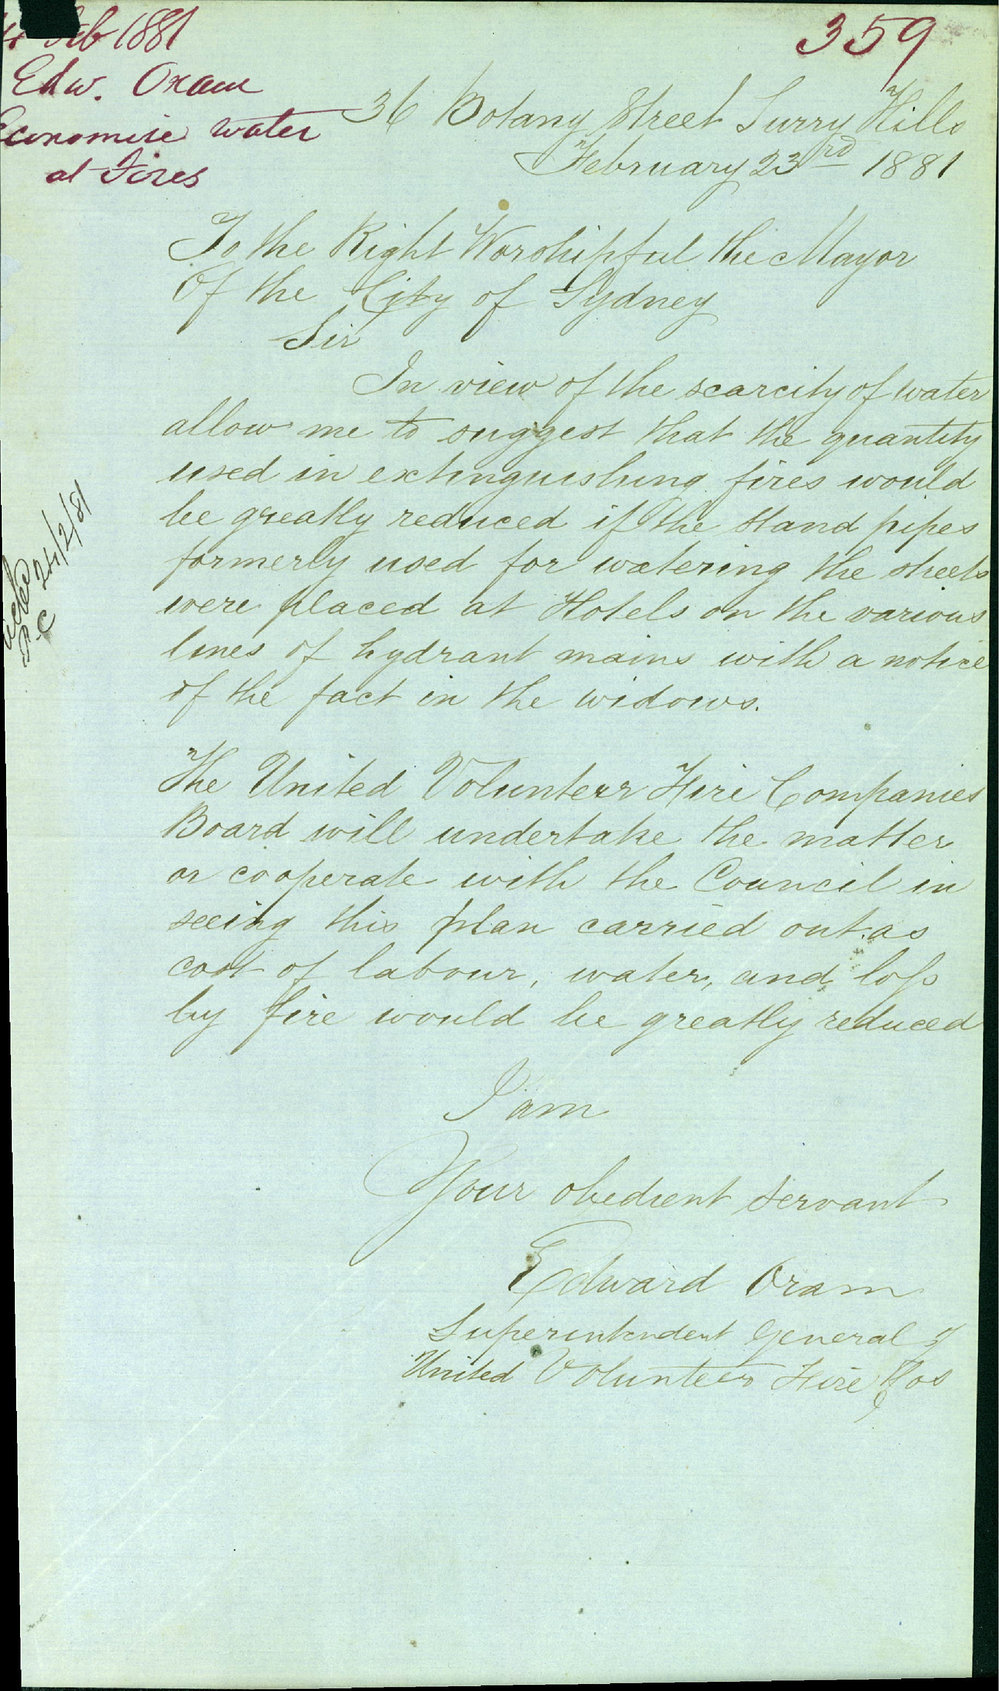 Feb 1881
Edw. Oram
Economise water
at Fires
359
36 Botany Street Surry Hills
February 23rd 1881
To the Right Worshipful the Mayor
Of the City of Sydney
Sir
In view of the scarcity of water
allow me to suggest that the quantity
used in extinguishing fires would
be greatly reduced if the stand pipes
formerly used for watering the streets
were placed at Hotels on the various
lines of hydrant mains with a notice
of the fact in the widows.
The United Volunteer Fire Companies
Board will undertake the matter
or cooperate with the Council in
seeing this plan carried out as
cost of labour, water, and loss
by fire would be greatly reduced
I am
Your obedient servant
Edward Oram
Superintendent General of
United Volunteer Fire Cos
24/2/81